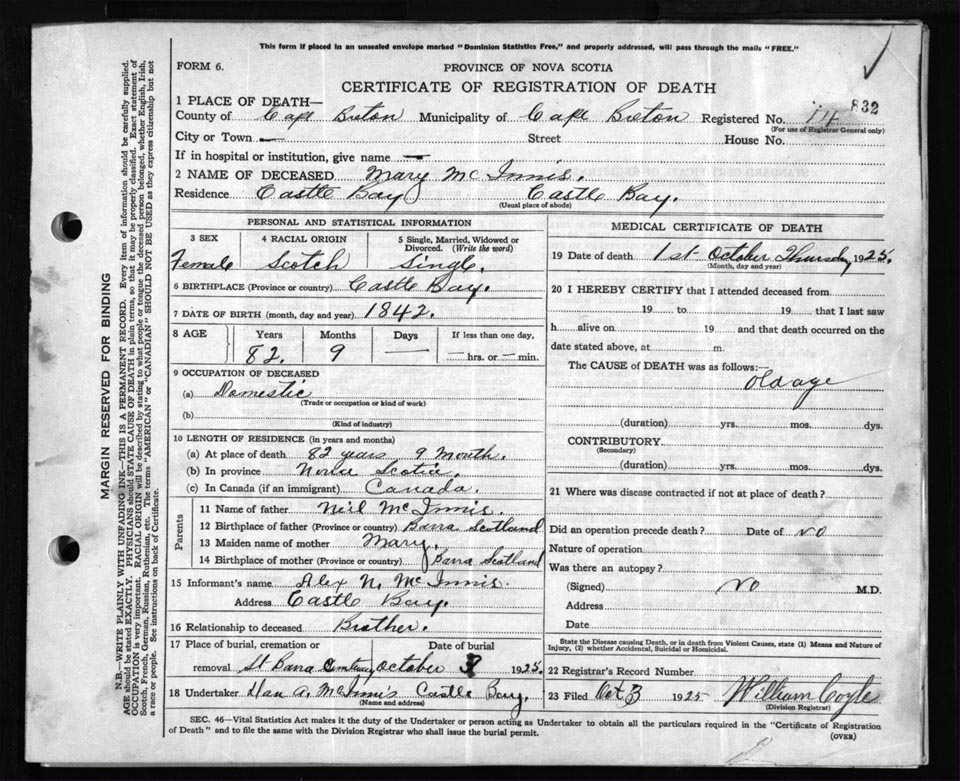 This form if placed in an unsealed envelope marked "Dominion Statistics Free," and properly addressed, will pass through the mails "FREE."
FORM 6.
PROVINCE OF NOVA SCOTIA
CERTIFICATE OF REGISTRATION OF DEATH
832
1 PLACE OF DEATH—
County of Cape Breton Municipality of Cape Breton Registered No. 14
(For use of Registrar General only)
City or Town — Street House No.
If in hospital or institution, give name —
2 NAME OF DECEASED Mary McInnis.
Residence Castle Bay Castle Bay.
(Usual place of abode)
PERSONAL AND STATISTICAL INFORMATION
3 SEX 4 RACIAL ORIGIN 5 Single, Married, Widowed or Divorced. (Write the word)
Female Scotch Single.
6 BIRTHPLACE (Province or country) Castle Bay.
7 DATE OF BIRTH (month, day and year) 1842.
8 AGE Years Months Days If less than one day,
82. 9 — — hrs. or — min.
9 OCCUPATION OF DECEASED
(a) Domestic
(Trade or occupation or kind of work)
(b)
(Kind of industry)
10 LENGTH OF RESIDENCE (in years and months)
(a) At place of death 82 years 9 Month.
(b) In province Nova Scotia.
(c) In Canada (if an immigrant) Canada.
Parents
11 Name of father Neil McInnis.
12 Birthplace of father (Province or country) Barra Scotland
13 Maiden name of mother Mary.
14 Birthplace of mother (Province or country) Barra Scotland
15 Informant's name Alex N. McInnis.
Address Castle Bay.
16 Relationship to deceased Brother.
17 Place of burial, cremation or removal Date of burial
St Barra Cemtary October 3 1925.
18 Undertaker Dan A. McInnis Castle Bay.
(Name and address)
MEDICAL CERTIFICATE OF DEATH
19 Date of death 1st October Thursday 1925.
(Month, day and year)
20 I HEREBY CERTIFY that I attended deceased from
19 to 19 that I last saw
h alive on 19 and that death occurred on the
date stated above, at m.
The CAUSE of DEATH was as follows:—
old age
(duration) yrs. mos. dys.
CONTRIBUTORY
(Secondary)
(duration) yrs. mos. dys.
21 Where was disease contracted if not at place of death?
Did an operation precede death? Date of no
Nature of operation
Was there an autopsy?
(Signed) No M.D.
Address
Date
State the Disease causing Death, or in death from Violent Causes, state (1) Means and Nature of Injury, (2) whether Accidental, Suicidal or Homicidal.
22 Registrar's Record Number
23 Filed Oct 3 1925 William Coyle
(Division Registrar)
SEC. 46—Vital Statistics Act makes it the duty of the Undertaker or person acting as Undertaker to obtain all the particulars required in the "Certificate of Registration
of Death" and to file the same with the Division Registrar who shall issue the burial permit.
(OVER)
MARGIN RESERVED FOR BINDING
N.B.—WRITE PLAINLY WITH UNFADING INK—THIS IS A PERMANENT RECORD. Every item of information should be carefully supplied.
AGE should be stated EXACTLY. PHYSICIANS should STATE CAUSE OF DEATH in plain terms, so that it may be properly classified. Exact statement of
OCCUPATION is very important. RACIAL ORIGIN will be described by stating to what people or tongue the deceased person belonged, whether English, Irish,
Scotch, French, German, Russian, Ruthenian, etc. The terms "AMERICAN" or "CANADIAN" SHOULD NOT BE USED as they express citizenship but not
a race or people. See instructions on back of Certificate.